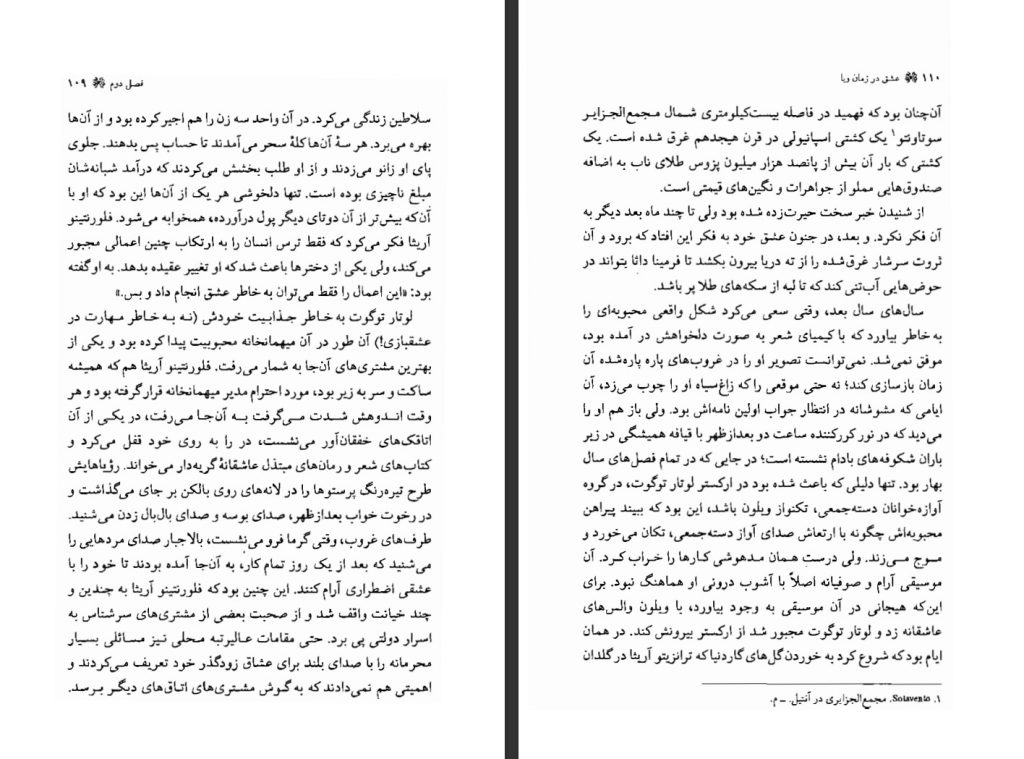 فصل دوم ۱۰۹
سلاطین زندگی می‌کرد. در آن واحد سه زن را هم اجیر کرده بود و از آن‌ها
بهره می‌برد. هر سهٔ آن‌ها کلهٔ سحر می‌آمدند تا حساب پس بدهند. جلوی
پای او زانو می‌زدند و از او طلب بخشش می‌کردند که درآمد شبانه‌شان
مبلغ ناچیزی بوده است. تنها دلخوشی هر یک از آن‌ها این بود که او با
آن‌که بیش‌تر از آن دوتای دیگر پول درآورده، همخوابه می‌شود. فلورنتینو
آریثا فکر می‌کرد که فقط ترس انسان را به ارتکاب چنین اعمالی مجبور
می‌کند، ولی یکی از دخترها باعث شد که او تغییر عقیده بدهد. به او گفته
بود: «این اعمال را فقط می‌توان به خاطر عشق انجام داد و بس.»
لوتار توگوت به خاطر جذابیت خودش (نه به خاطر مهارت در
عشقبازی!) آن طور در آن میهمانخانه محبوبیت پیدا کرده بود و یکی از
بهترین مشتری‌های آن‌جا به شمار می‌رفت. فلورنتینو آریثا هم که همیشه
ساکت و سر به زیر بود، مورد احترام مدیر میهمانخانه قرار گرفته بود و هر
وقت اندوهش شدت می‌گرفت به آن‌جا می‌رفت، در یکی از آن
اتاقک‌های خفقان‌آور می‌نشست، در را به روی خود قفل می‌کرد و
کتاب‌های شعر و رمان‌های مبتذل عاشقانهٔ گریه‌دار می‌خواند. رؤیاهایش
طرح تیره‌رنگ پرستوها را در لانه‌های روی بالکن بر جای می‌گذاشت و
در رخوت خواب بعدازظهر، صدای بوسه و صدای بال‌بال زدن می‌شنید.
طرف‌های غروب، وقتی گرما فرو می‌نشست، بالاجبار صدای مردهایی را
می‌شنید که بعد از یک روز تمام کار، به آن‌جا آمده بودند تا خود را با
عشقی اضطراری آرام کنند. این چنین بود که فلورنتینو آریثا به چندین و
چند خیانت واقف شد و از صحبت بعضی از مشتری‌های سرشناس به
اسرار دولتی پی برد. حتی مقامات عالیرتبه محلی نیز مسائلی بسیار
محرمانه را با صدای بلند برای عشاق زودگذر خود تعریف می‌کردند و
اهمیتی هم نمی‌دادند که به گوش مشتری‌های اتاق‌های دیگر برسد.
۱۱۰ عشق در زمان وبا
آن‌چنان بود که فهمید در فاصله بیست‌کیلومتری شمال مجمع‌الجزایر
سوتاونتو۱ یک کشتی اسپانیولی در قرن هیجدهم غرق شده است. یک
کشتی که بار آن بیش از پانصد هزار میلیون پزوس طلای ناب به اضافه
صندوق‌هایی مملو از جواهرات و نگین‌های قیمتی است.
از شنیدن خبر سخت حیرت‌زده شده بود ولی تا چند ماه بعد دیگر به
آن فکر نکرد. و بعد، در جنون عشق خود به فکر این افتاد که برود و آن
ثروت سرشار غرق‌شده را از ته دریا بیرون بکشد تا فرمینا داثا بتواند در
حوض‌هایی آب‌تنی کند که تا لبه از سکه‌های طلا پر باشد.
سال‌های سال بعد، وقتی سعی می‌کرد شکل واقعی محبوبه‌ای را
به خاطر بیاورد که با کیمیای شعر به صورت دلخواهش در آمده بود،
موفق نمی‌شد. نمی‌توانست تصویر او را در غروب‌های پاره پاره‌شده آن
زمان بازسازی کند؛ نه حتی موقعی را که زاغ‌سیاه او را چوب می‌زد، آن
ایامی که مشوشانه در انتظار جواب اولین نامه‌اش بود. ولی باز هم او را
می‌دید که در نور کورکننده ساعت دو بعدازظهر با قیافه همیشگی در زیر
باران شکوفه‌های بادام نشسته است؛ در جایی که در تمام فصل‌های سال
بهار بود. تنها دلیلی که باعث شده بود در ارکستر لوتار توگوت، در گروه
آوازه‌خوانان دسته‌جمعی، تکنواز ویلون باشد، این بود که ببیند پیراهن
محبوبه‌اش چگونه با ارتعاش صدای آواز دسته‌جمعی، تکان می‌خورد و
موج می‌زند. ولی درست همان مدهوشی کارها را خراب کرد. آن
موسیقی آرام و صوفیانه اصلاً با آشوب درونی او هماهنگ نبود. برای
این‌که هیجانی در آن موسیقی به وجود بیاورد، با ویلون والس‌های
عاشقانه زد و لوتار توگوت مجبور شد از ارکستر بیرونش کند. در همان
ایام بود که شروع کرد به خوردن گل‌های گاردنیا که ترانزیتو آریثا در گلدان
۱. Sotavento، مجمع‌الجزایری در آنتیل. ـ م.